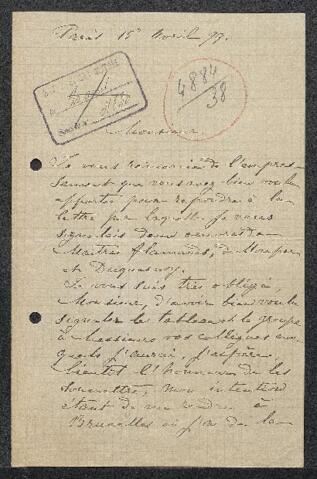 Paris 15 Avril 99.
4884
38
Monsieur,
Je vous remercie de l'empres-
sement que vous avez bien voulu
apporter pour répondre à la
lettre par laquelle je vous
signalais deux
Maîtres flamands, de
et Duquesnoy.
Je vous suis très obligé,
Monsieur, d'avoir bien voulu
signaler le tableau et le groupe
à Messieurs vos collègues aux
quels j'aurai, j'espère,
bientôt l'honneur de les
soumettre, mon intention
étant de me rendre à
Bruxelles de la